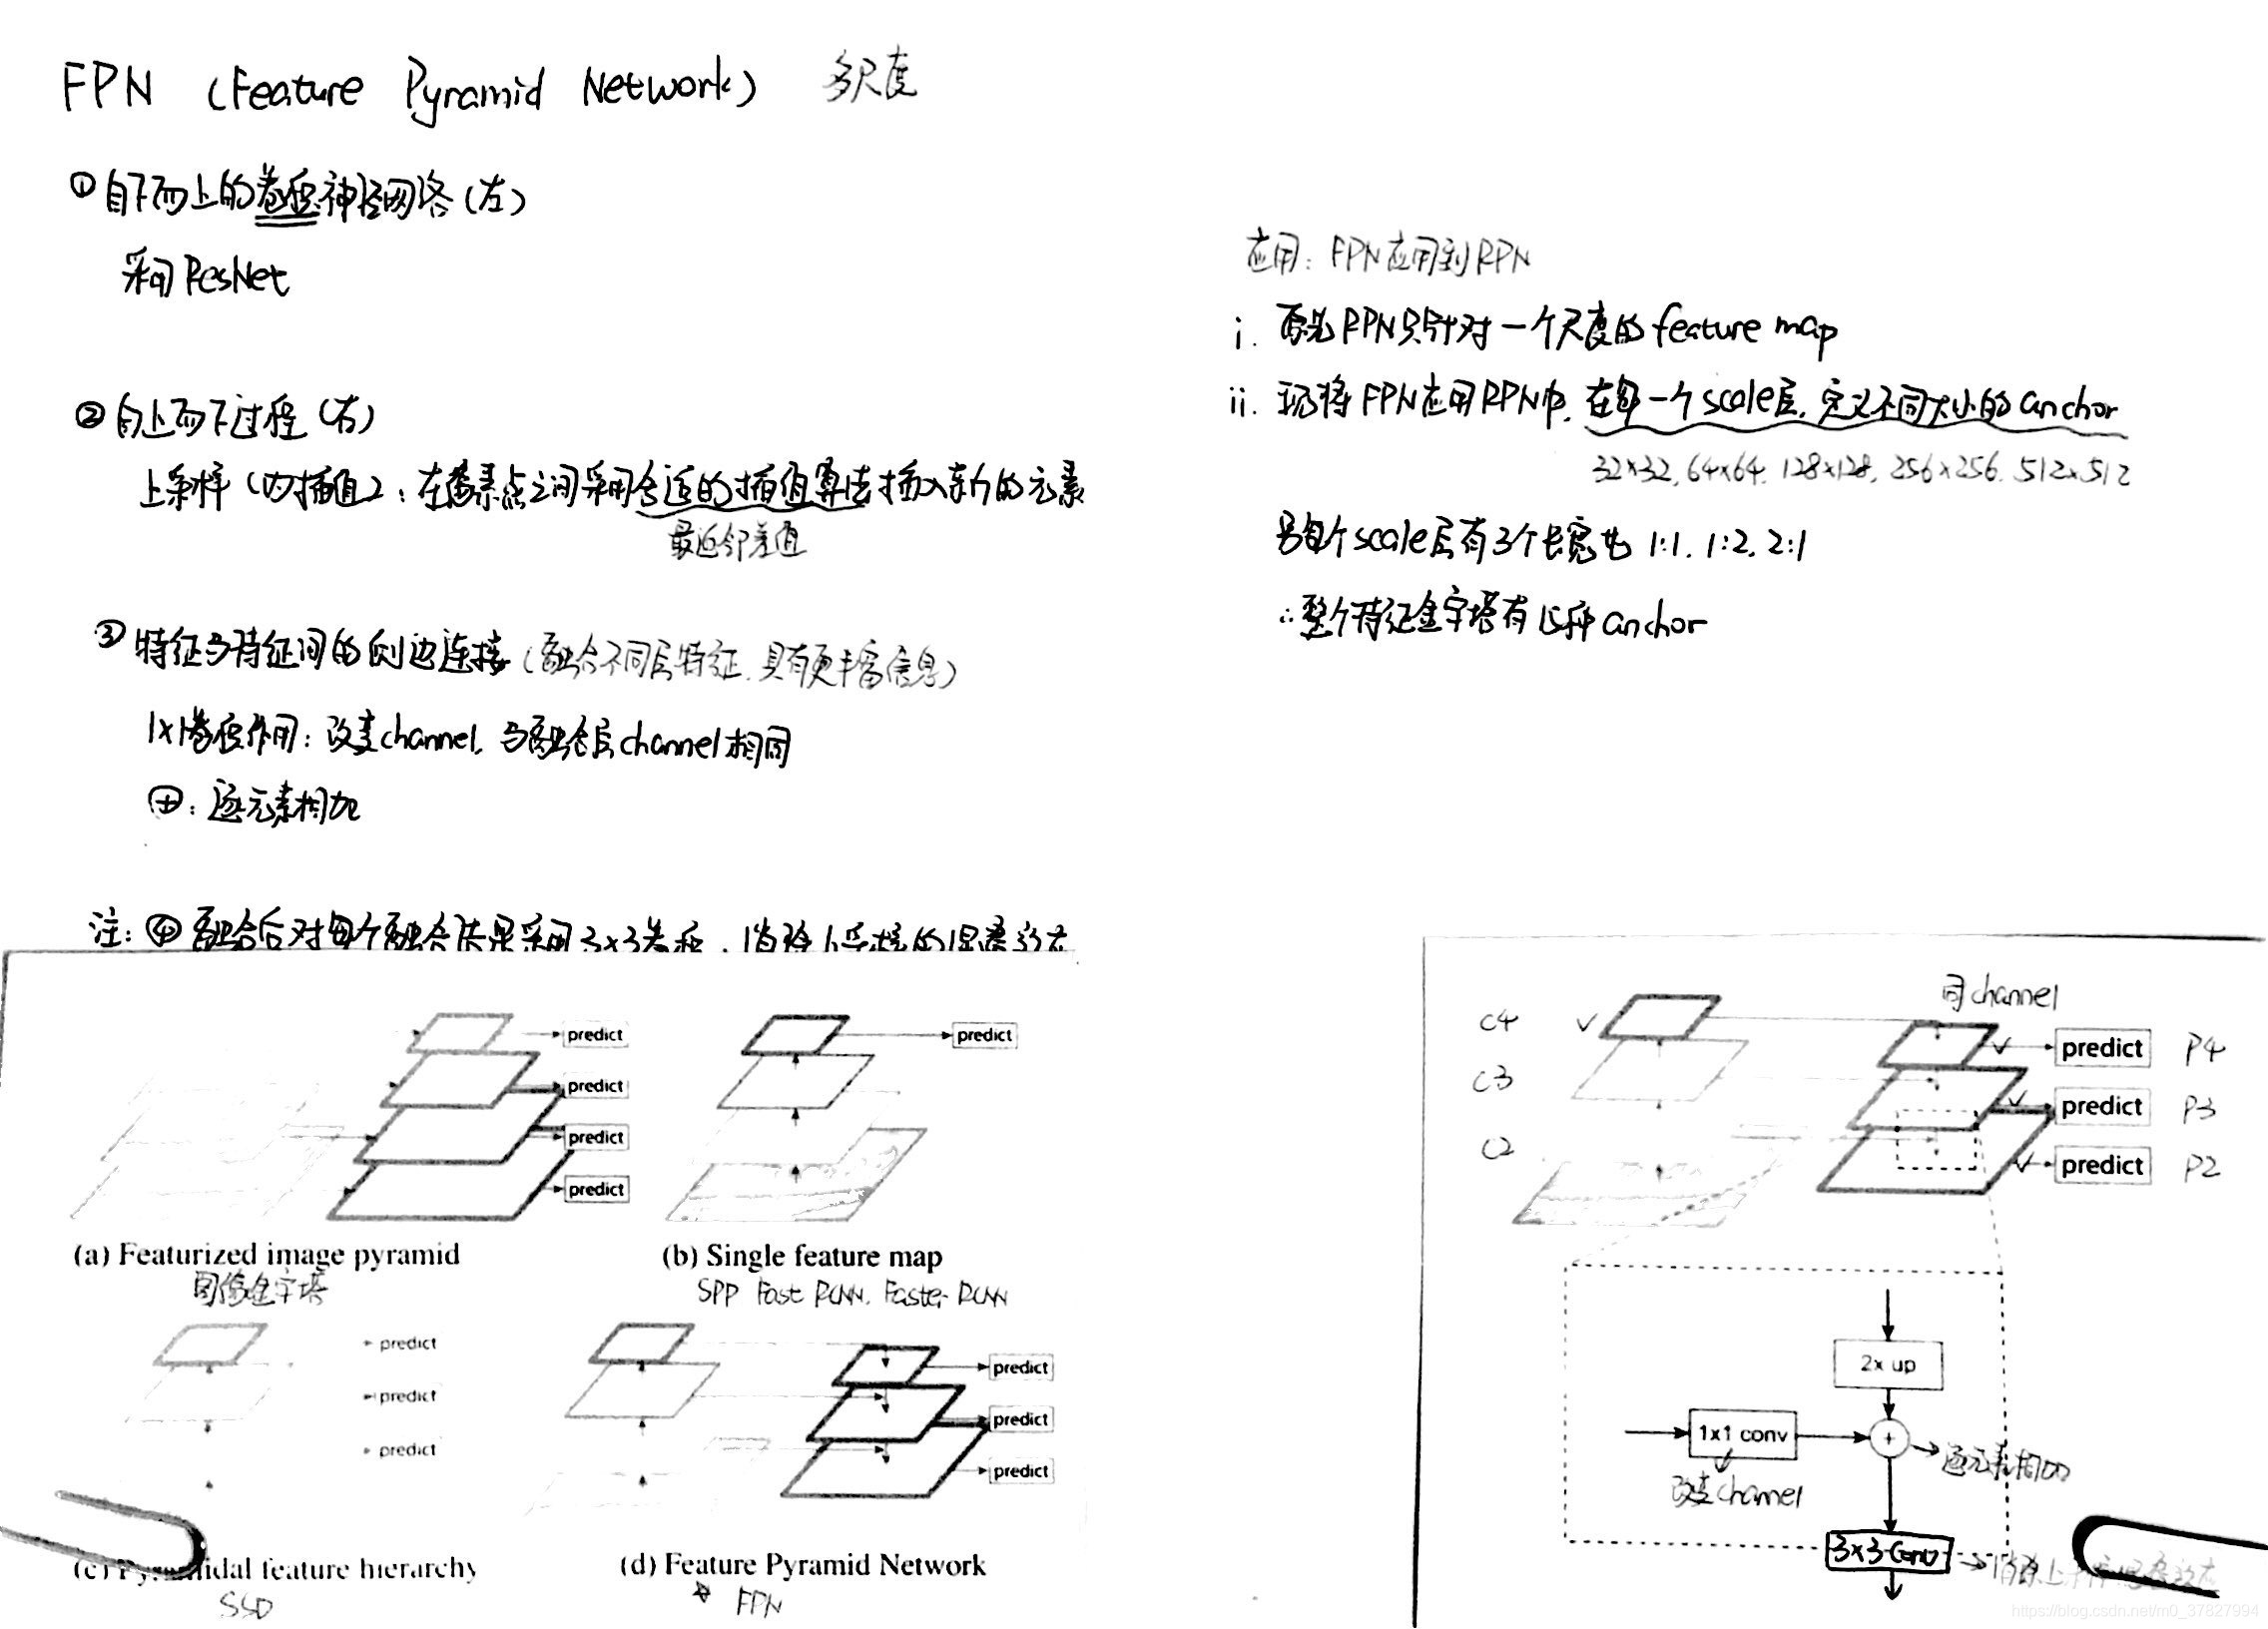 FPN (Feature Pyramid Network) 多尺度
① 自下而上的卷积神经网络(左)
采用ResNet
② 自上而下过程(右)
上采样(内插值):在像素点之间采用合适的插值算法插入新的元素
最近邻差值
③ 特征与特征间的侧边连接(融合不同层特征,具有更丰富信息)
1×1卷积作用:改变channel,与融合层channel相同
⊕:逐元素相加
注:④ 融合后对每个融合结果采用3×3卷积,消除上采样的混叠效应
predict
predict
predict
predict
(a) Featurized image pyramid
图像金字塔
predict
(b) Single feature map
SPP Fast RCNN, Faster RCNN
predict
predict
predict
(c) Pyramidal feature hierarchy
SSD
predict
predict
predict
(d) Feature Pyramid Network
FPN
应用:FPN应用到RPN
i. 原先RPN只针对一个尺度的feature map
ii. 现将FPN应用RPN中,在每一个scale层,定义不同大小的anchor
32×32, 64×64, 128×128, 256×256, 512×512
另每个scale层有3个长宽比 1:1, 1:2, 2:1
∴整个特征金字塔有15种anchor
同channel
C4
predict P4
C3
predict P3
C2
predict P2
2x up
1x1 conv
+
逐元素相加
改变channel
3×3 conv
消除上采样混叠效应
https://blog.csdn.net/m0_37827994